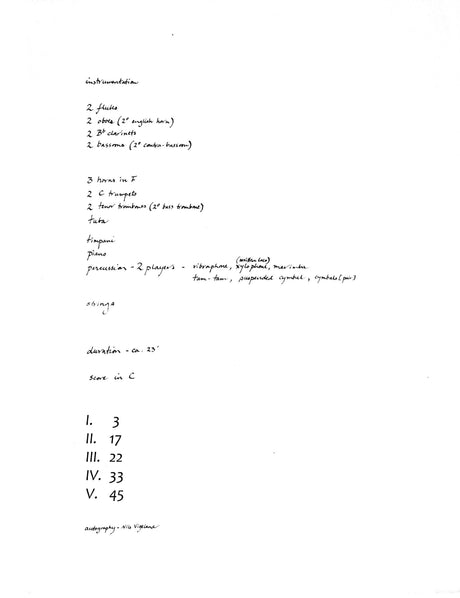 instrumentation
2 flutes
2 oboes (2º english horn)
2 Bb clarinets
2 bassoons (2º contra-bassoon)
3 horns in F
2 C trumpets
2 tenor trombones (2º bass trombone)
tuba
timpani
piano
(written 8va)
percussion - 2 players - vibraphone, xylophone, marimba
tam-tam, suspended cymbal, cymbals (pair)
strings
duration - ca. 23'
score in C
I. 3
II. 17
III. 22
IV. 33
V. 45
autography - Nils Vigeland